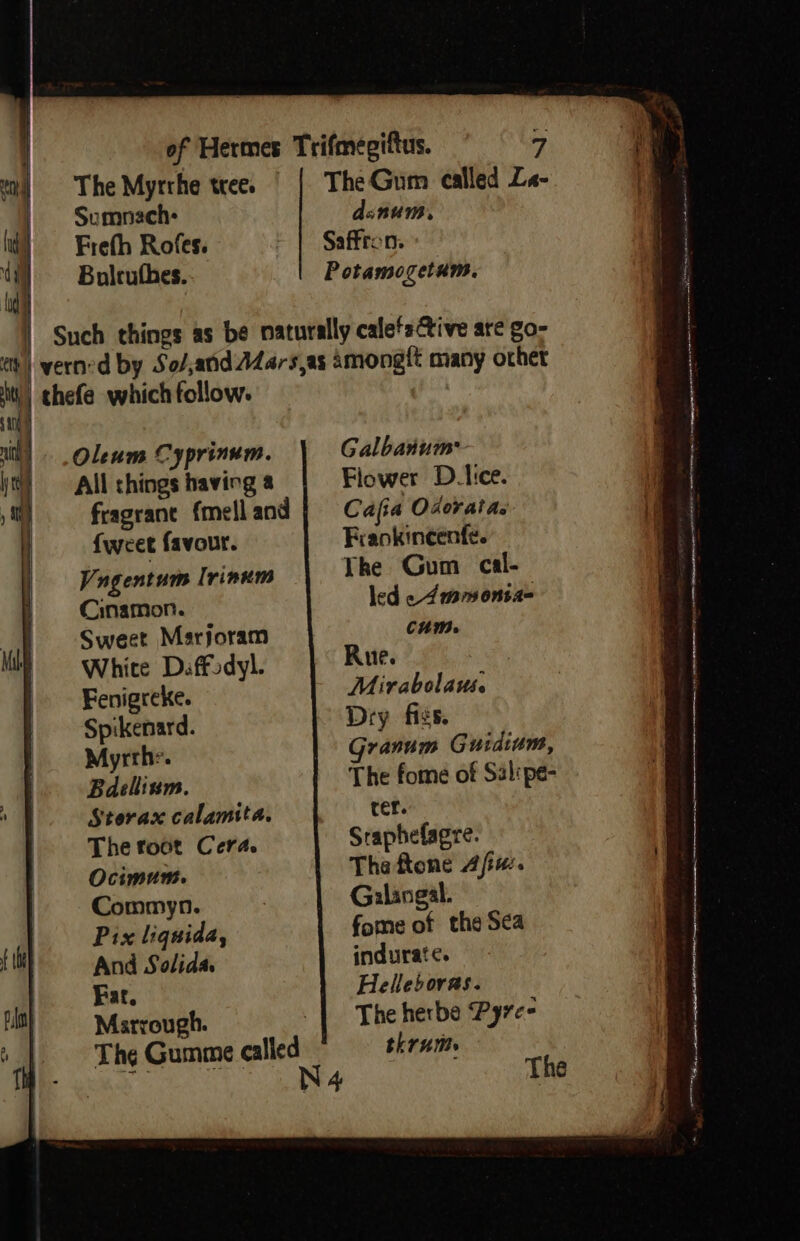 of Hermes Triſmegiſtus. 7
The Myrrhe tree.
Sumnach.
Freſh Roſes.
Bulruſhes.
The Gum called La-
danum.
Saffron.
Potamogetum.
Such things as be naturally calefactive are go-
vern'd by Sol, and Mars, as amongſt many other
theſe which follow.
Oleum Cyprinum.
All things having a
fragrant ſmell and
ſweet ſavour.
Vngentum Irinum
Cinamon.
Sweet Marjoram
White Daffodyl.
Fenigreke.
Spikenard.
Myrrhe.
Bdellium.
Storax calamita.
The root Cera.
Ocimum.
Commyn.
Pix liquida,
And Solida.
Fat.
Marrough.
The Gumme called
Galbanum.
Flower D.lice.
Caſia Odorata.
Frankincenſe.
The Gum cal-
led Ammonia-
cum.
Rue.
Mirabolans.
Dry figs.
Granum Guidium,
The fome of Salipe-
ter.
Stapheſagre.
The ſtone Aſius.
Galangal.
fome of the Sea
indurate.
Helleboras.
The herbe Pyre-
thrum.
N 4
The